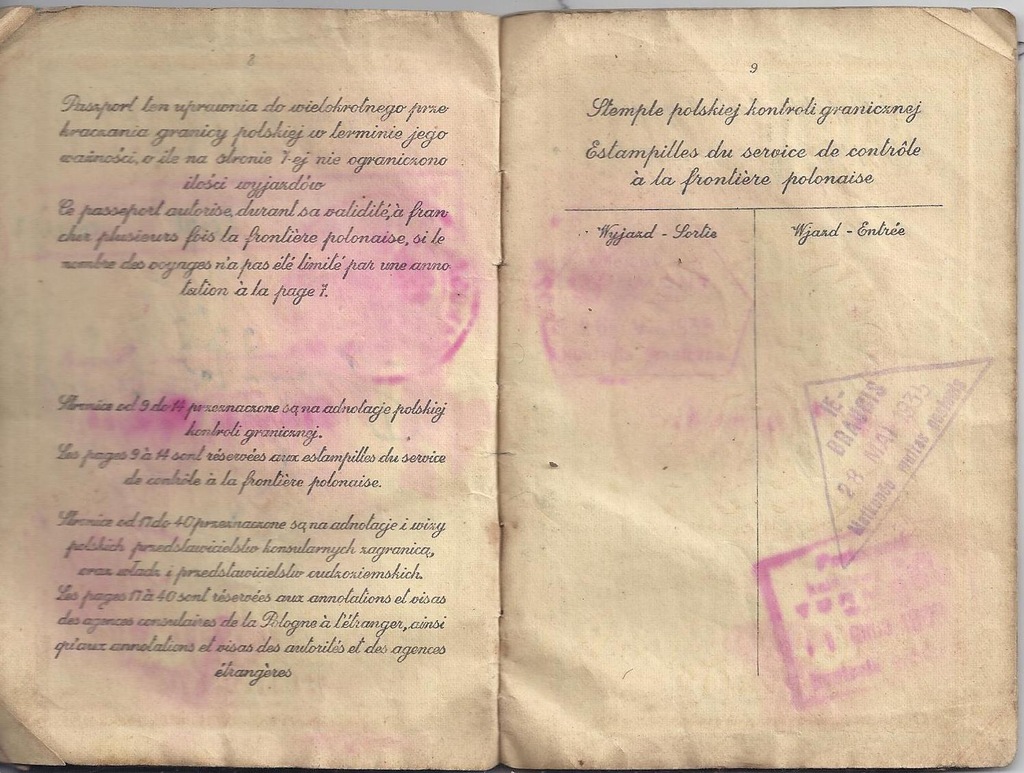 8
Paszport ten uprawnia do wielokrotnego prze
kraczania granicy polskiej w terminie jego
ważności, o ile na stronie 7-ej nie ograniczono
ilości wyjazdów
Ce passeport autorise, durant sa validité, à fran-
chir plusieurs fois la frontière polonaise, si le
nombre des voyages n'a pas été limité par une anno
tation à la page 7.
Stronice od 9 do 14 przeznaczone są na adnotacje polskiej
kontroli granicznej.
Les pages 9 à 14 sont réservées aux estampilles du service
de contrôle à la frontière polonaise.
Stronice od 17 do 40 przeznaczone są na adnotacje i wizy
polskich przedstawicielstw konsularnych zagranicą,
oraz władz i przedstawicielstw cudzoziemskich.
Les pages 17 à 40 sont réservées aux annotations et visas
des agences consulaires de la Pologne à l'étranger, ainsi
qu'aux annotations et visas des autorités et des agences
étrangères
9
Stemple polskiej kontroli granicznej
Estampilles du service de contrôle
à la frontière polonaise
Wyjazd - Sortie
Wjazd - Entrée
IE-
BRAUKTS
28 MAI 935